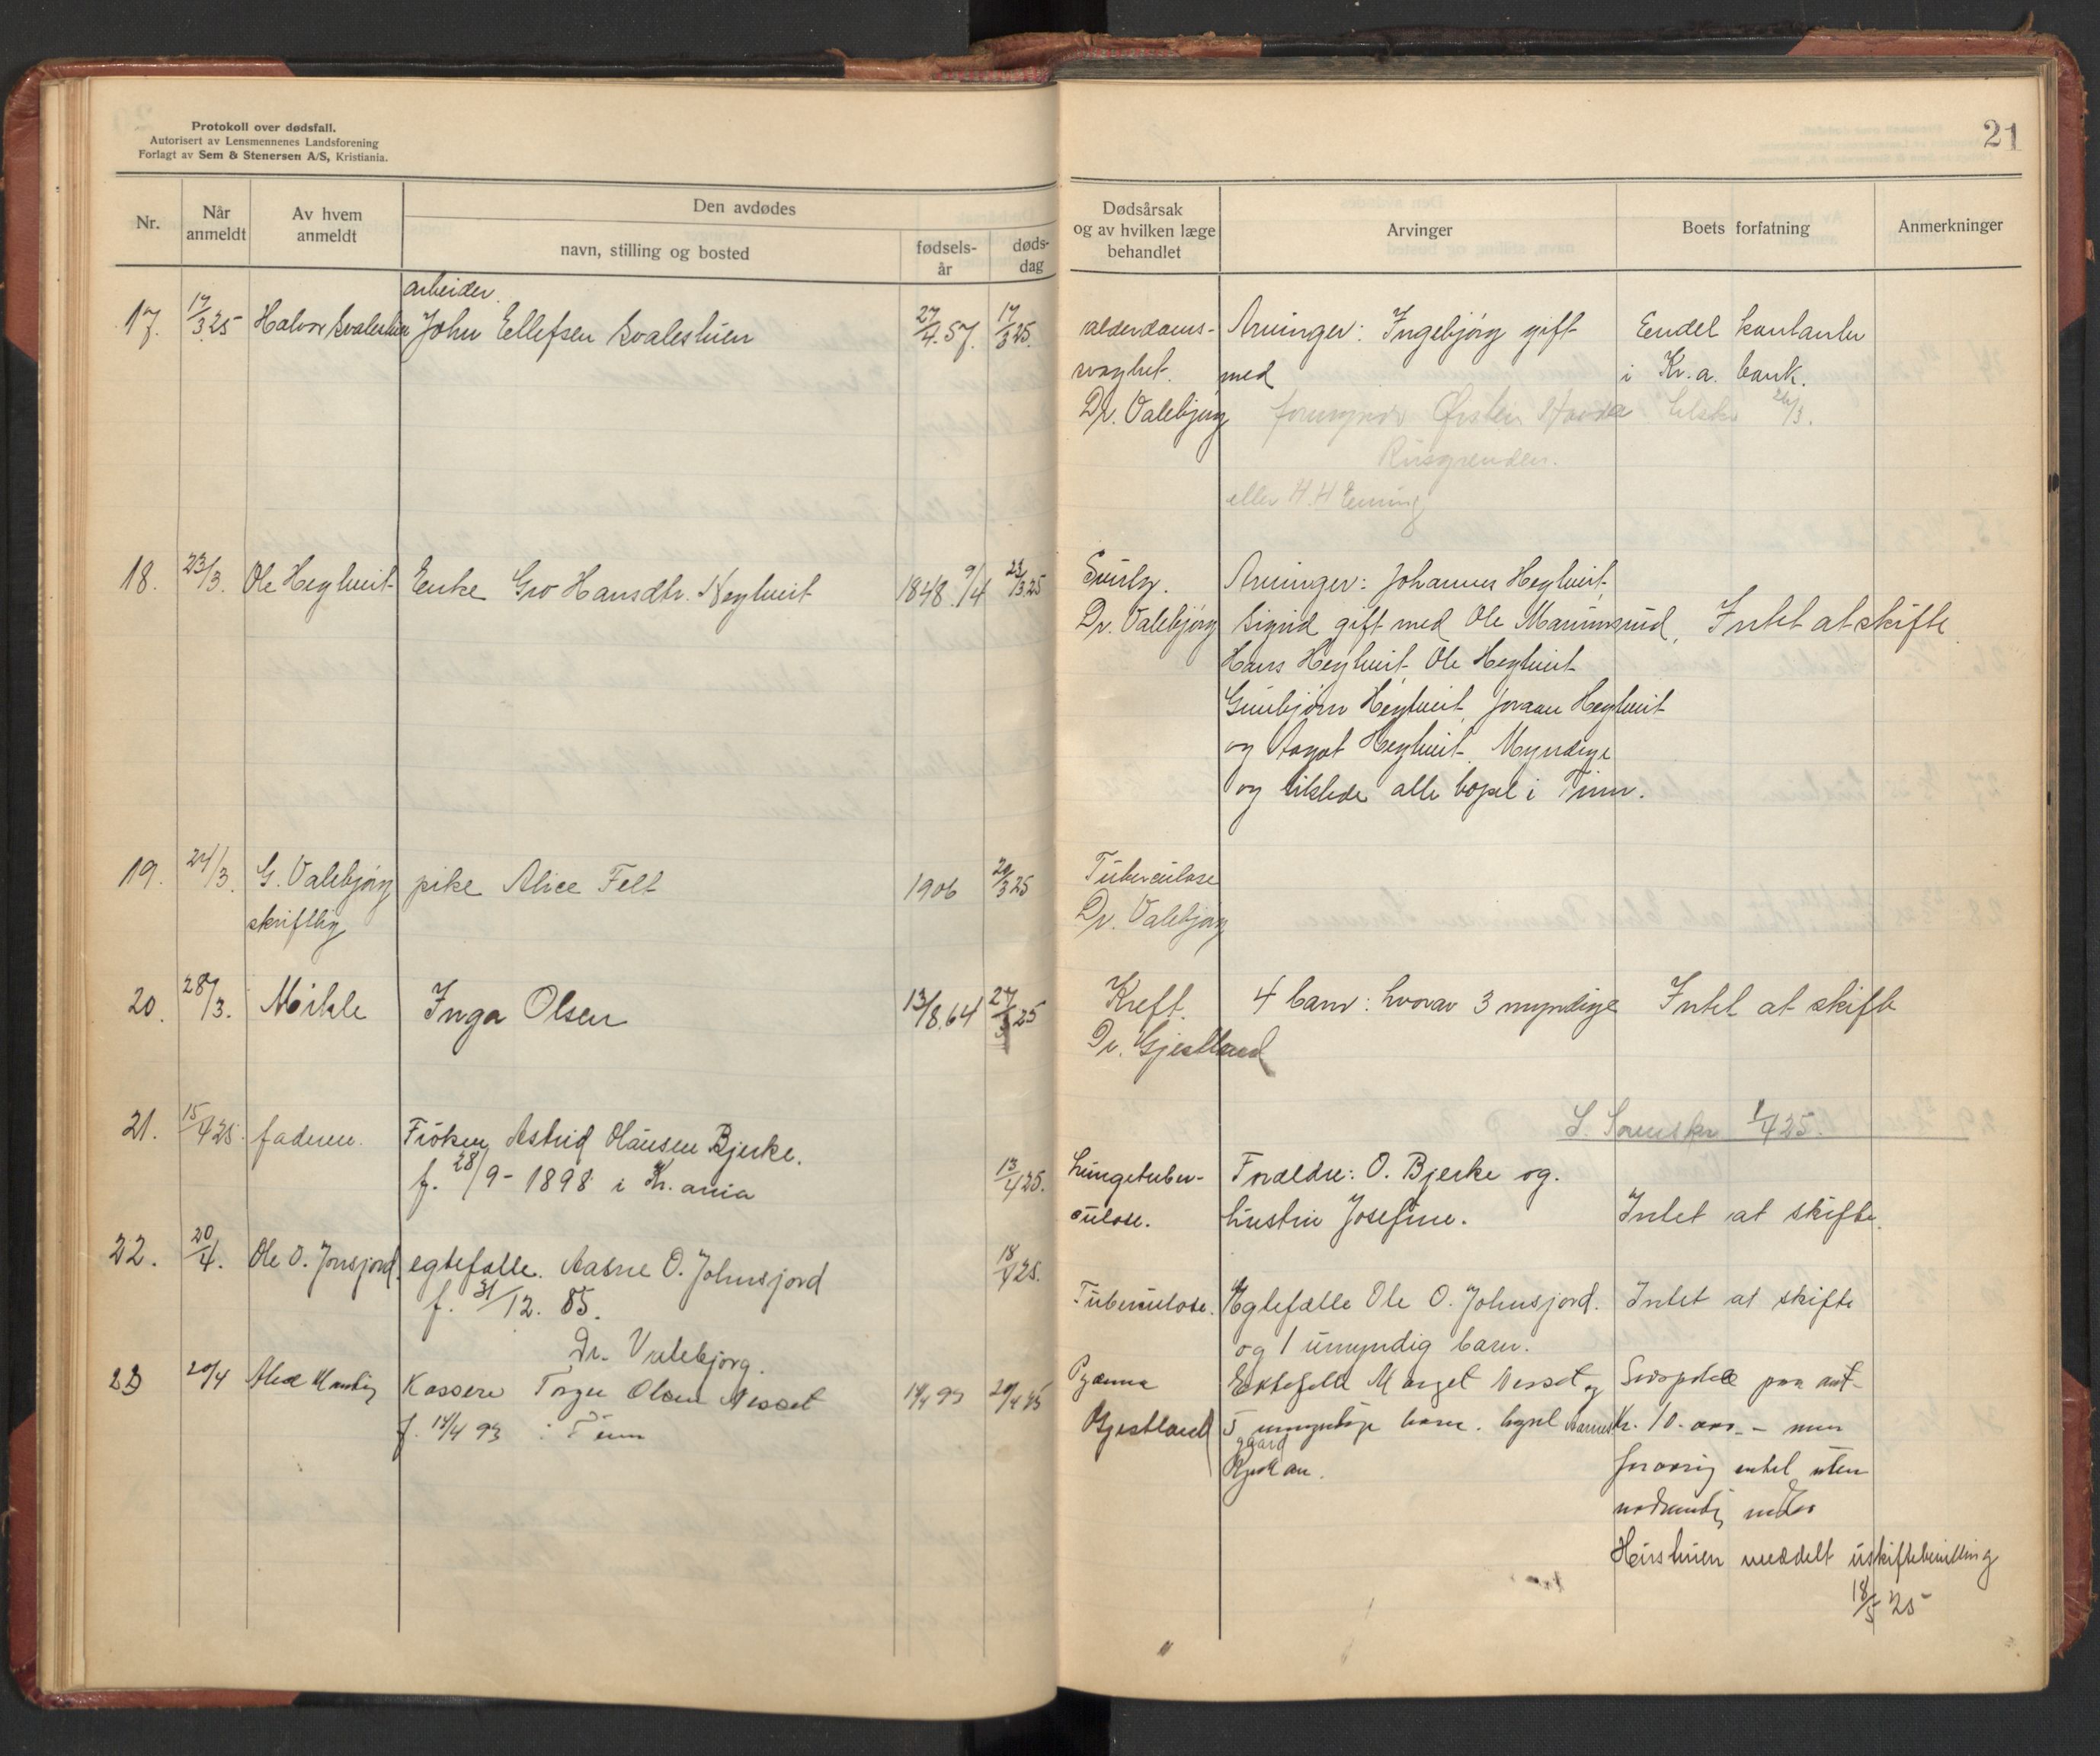 Protokoll over dødsfall.
Autorisert av Lensmennenes Landsforening
Forlagt av Sem & Stenersen A/S, Kristiania.
Nr.
Når anmeldt
Av hvem anmeldt
Den avdødes
navn, stilling og bosted
fødsels-år
døds-dag
arbeider.
17. 17/3 25 Halvor John Ellefsen 27/4. 57. 17/3 25.
18. 23/3. Ole Hegtveit Enke Gro Hansdtr. Hegtveit 1848 9/4 23/3 25
19. 24/3. G. Valebjørg pike Alice Felt 1906 20/3 25
skriftlig
20. 28/3. Inga Olsen 13/8. 64 27/3 25
21. 15/4 25. faderen. Frøken Astrid Olausen Bjerke.
f. 28/9 - 1898 i Kr.ania 13/4 25.
22. 20/4. Ole O. Jonsjord. egtefælle. Aasne O. Johnsjord 18/4 25.
f. 31/12. 85.
Dr. Valebjørg.
23 20/4 Kasserer Torger Olsen Nesset 14/4 93 20/4 25
f. 14/4 93 i Tinn
21
Dødsårsak
og av hvilken læge
behandlet
Arvinger
Boets forfatning
Anmerkninger
alderdoms- Arvinger: Ingebjørg gift Endel kontanter
svaghet. med i Kr.a. bank.
Dr. Valebjørg Østen 26/3.
Riisgrenden.
eller H. H
Arvinger: Johannes Hegtveit,
Dr. Valebjørg Sigrid gift med Ole Intet at skifte.
Hans Hegtveit Ole Hegtveit
Gunbjørn Hegtveit, Joraan Hegtveit
og Aagot Hegtveit. Myndige
og tilstede alle bopel i Tinn.
Tuberculose
Dr. Valebjørg
Kreft. 4 barn: hvorav 3 myndige Intet at skifte
Dr. Gjestland
1/4 25.
Lungetuber- Forældre: O. Bjerke og
culose. hustru Josefine. Intet at skifte.
Tuberculose. Egtefælle Ole O. Johnsjord. Intet at skifte
og 1 umyndig barn.
Pyæmia Ektefelle Marget Nesset og
Gjestland 5 umyndige barn. bopel Kr. 10.000.- men
gaard
Rjukan. forøvrig intet uten
nødvendig
Hustruen meddelt uskiftebevilling
18/5 25